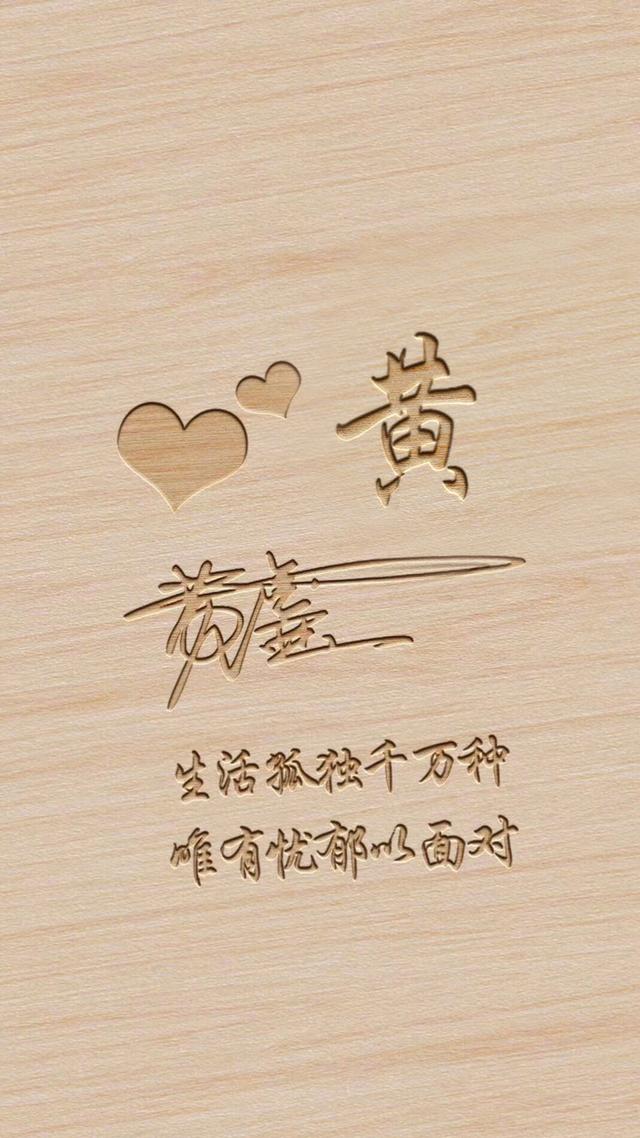 黄
生活孤独千万种
唯有忧郁以面对